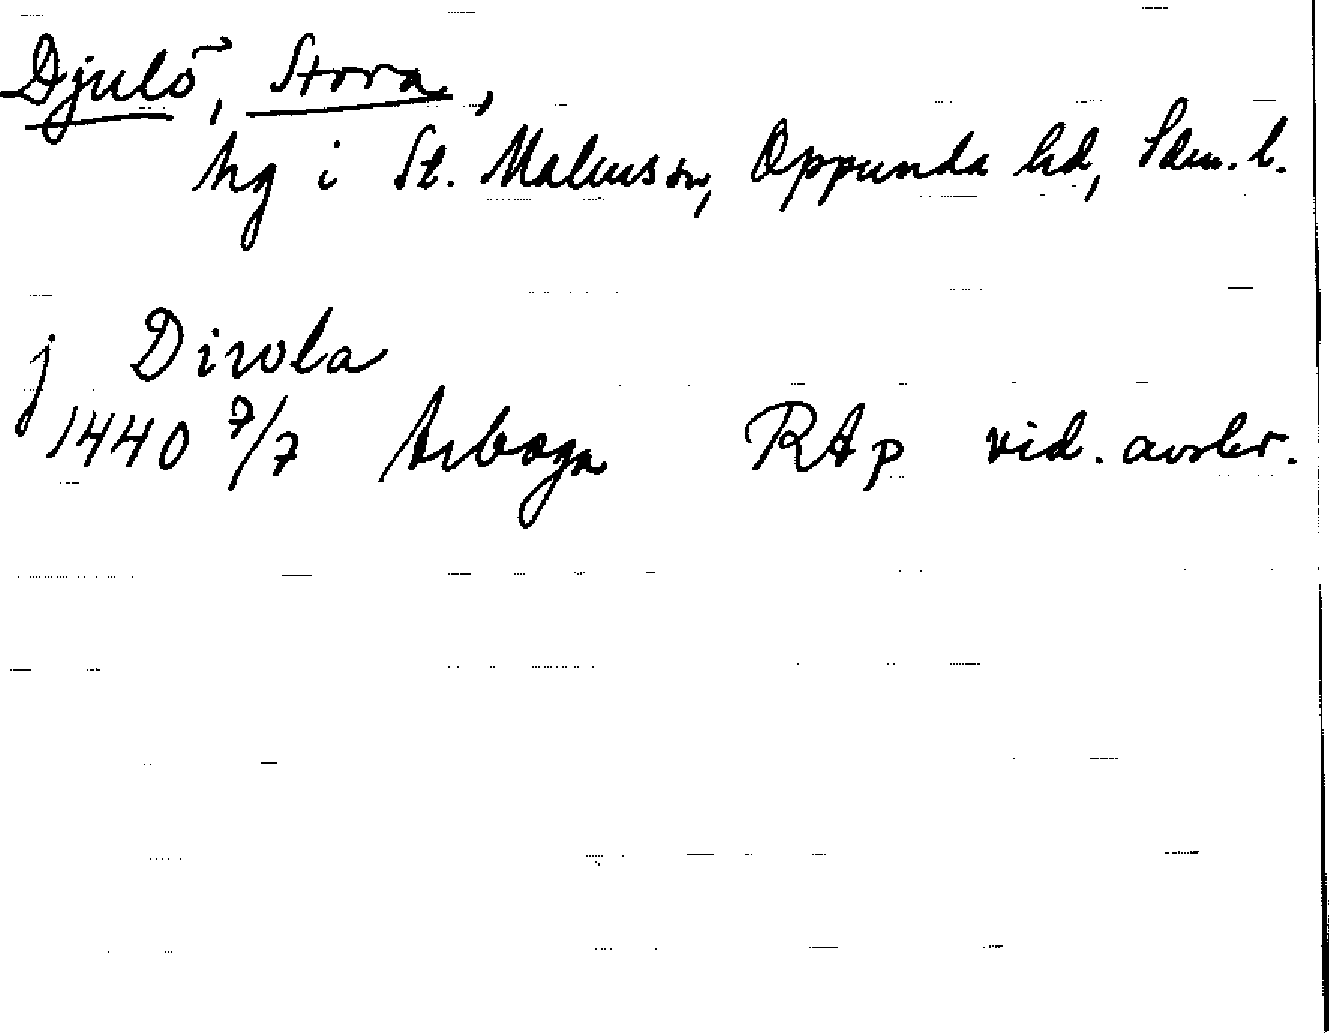 Djulö, Stora,
hg i St. Malms sn, Oppunda hd, Söm. l.
j Diwla
1440 7/7 Arboga RAp vid. avskr.